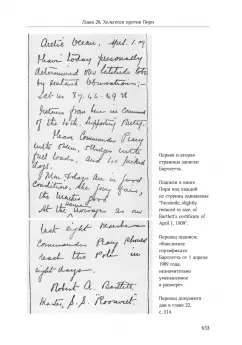 Глава 28. Хенсон против Пири
Arctic Ocean, Apl. 1. 09
I have today personally
determined our latitude
by sextant observation:—
Lat. N. 87.46-49 N
I return from here in command
of the 4th Supporting Party.
I leave Commander Peary
with 5 men, sledges with
full loads, and 40 picked
dogs.
Men & dogs are in good
condition. the
At the
last eight marches
Commander Peary should
reach the Pole in
eight days.
Robert A. Bartlett
Master, S.S. Roosevelt
Первая и вторая
страницы записки
Бартлетта.
Подписи в книге
Пири под каждой
из страниц одинаковы:
"Facsimile, slightly
reduced in size, of
Bartlett's certificate of
April 1, 1909".
Перевод подписи:
«Факсимиле
сертификата
Бартлетта от 1 апреля
1909 года,
незначительно
уменьшенное
в размере».
Перевод документа
дан в главе 22,
с. 514
633